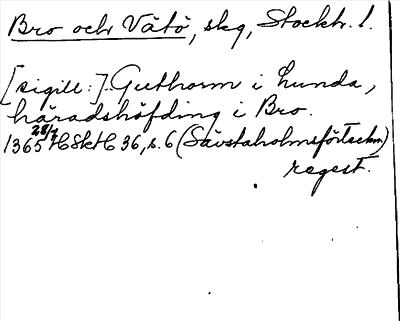 Bro och Vätö, skg, Stockh. l.
[sigill:]. Guthorm i Lunda,
häradshöfding i Bro.
1365 28/7 HSkH 36, s. 6 (Sävstaholmsförteckn)
regest.